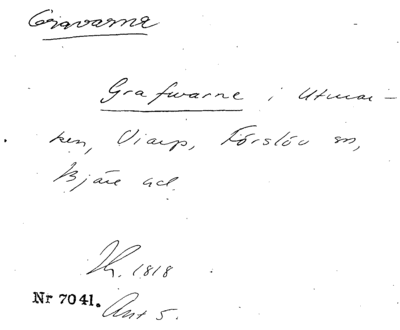 Gravarna
Grafwarne i Utmar-
ken, Viarp, Förslöv sn,
Bjäre hd.
Th. 1818
Nr 7041.
Ant 5.